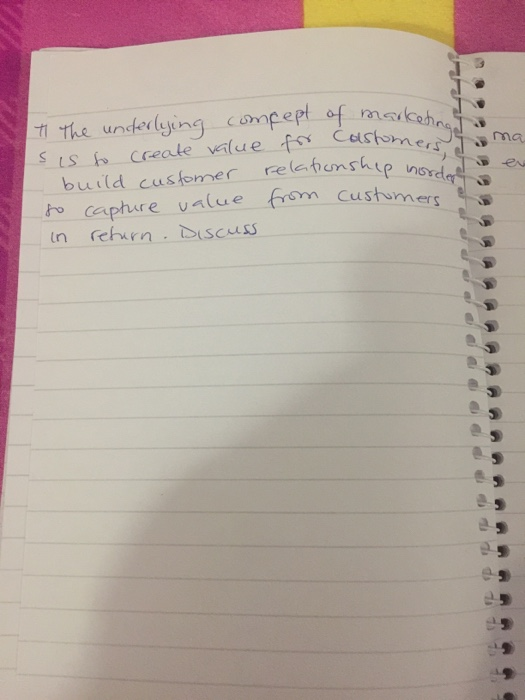 # The underlying compept of marketing
s is to create value for Customers,
build customer relationship inorder
to capture value from customers
in return. Discuss
ma
ev